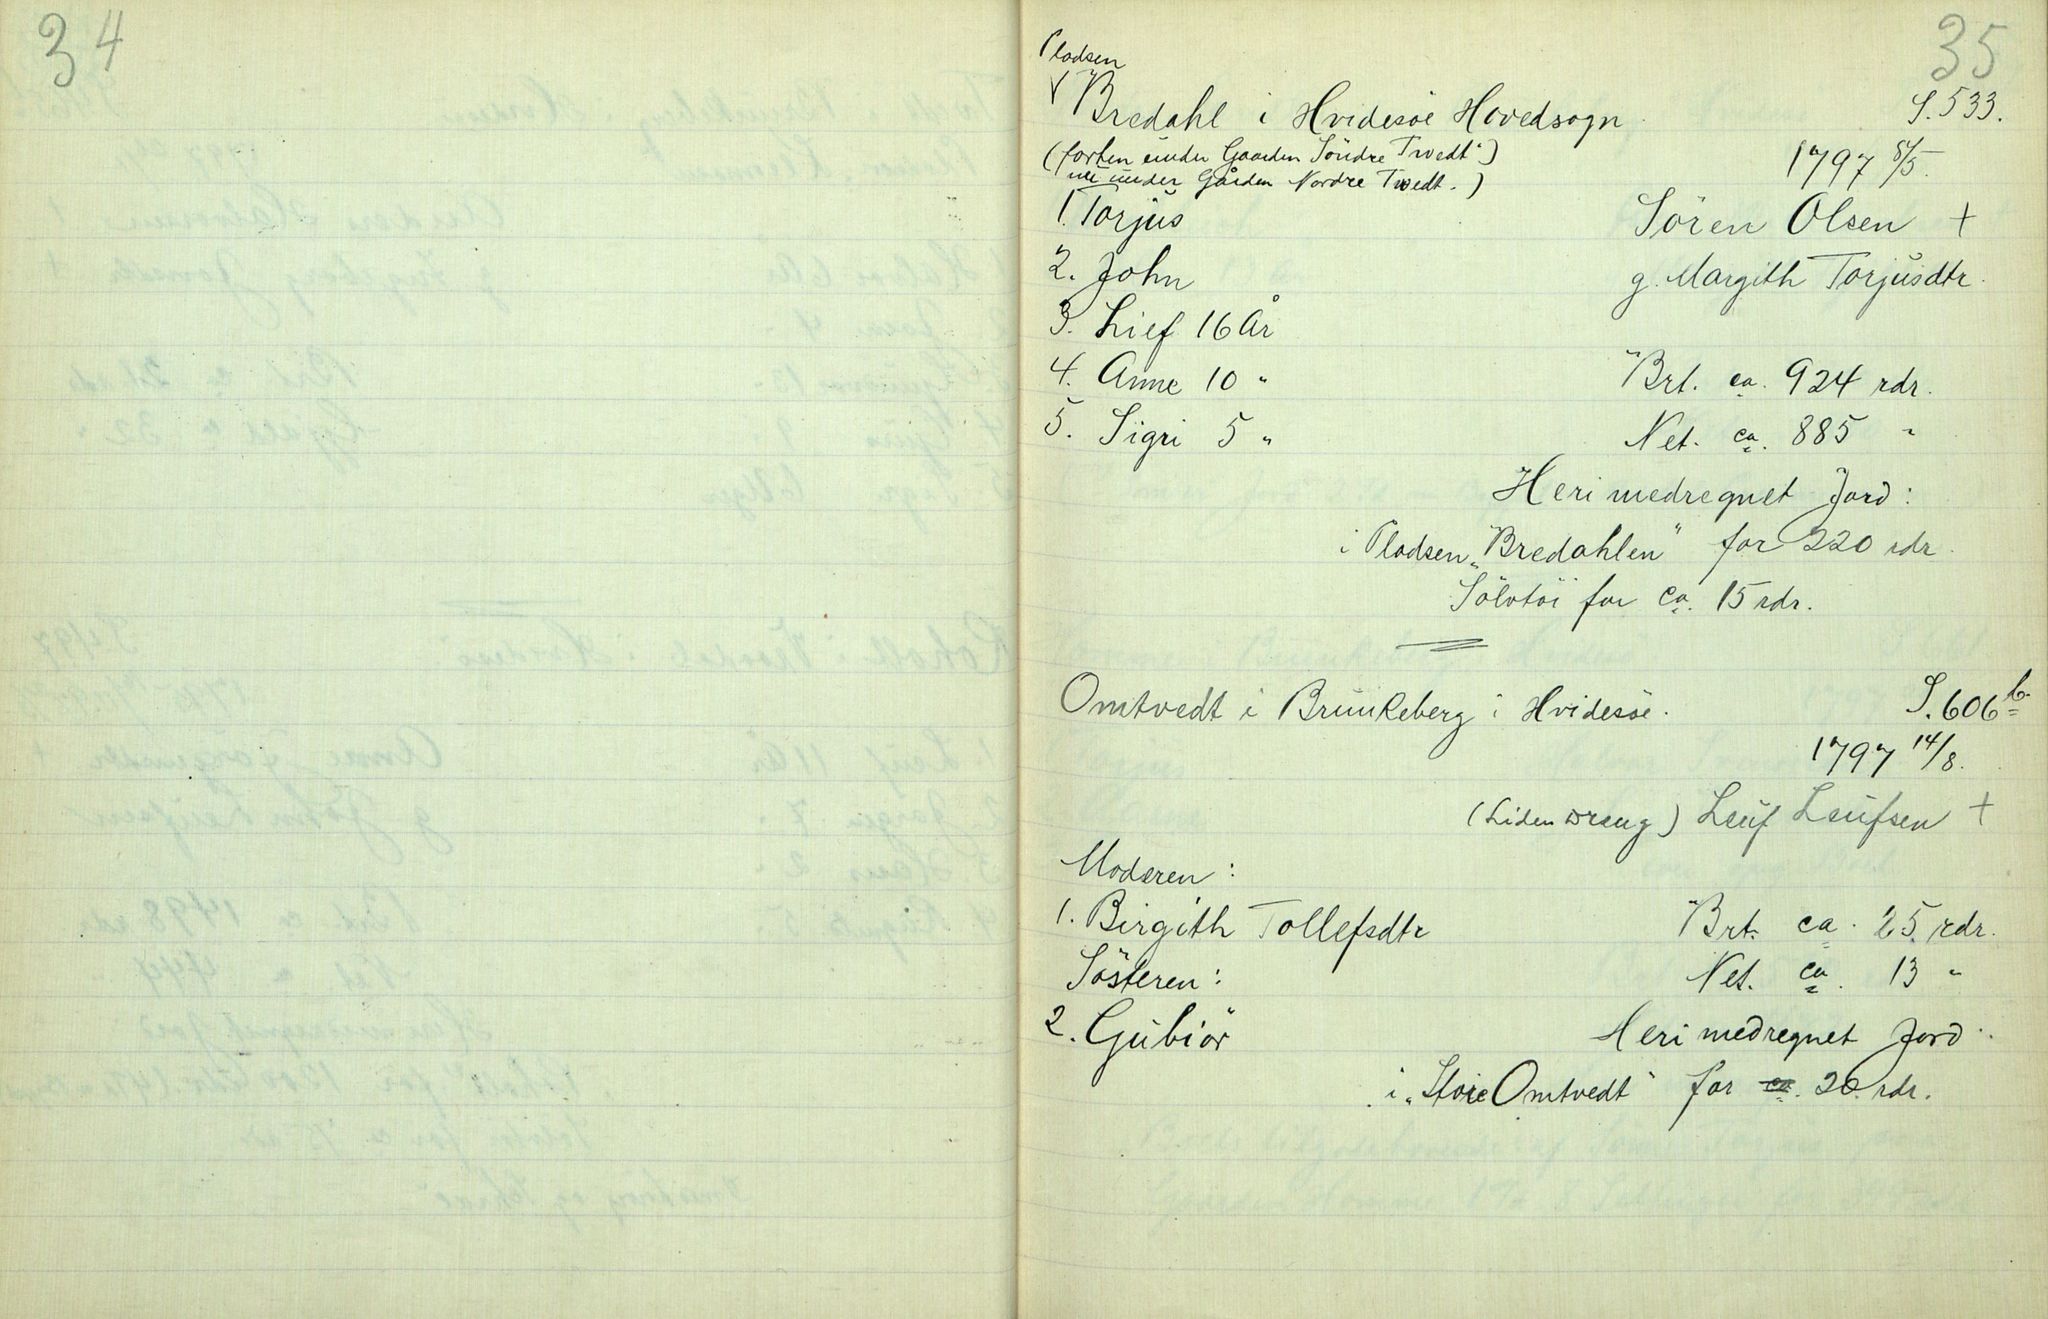 34
35
Pladsen
Bredahl i Hvidesøe Hovedsogn
S. 533.
(forhen under Gaarden Söndre Tvedt")
nu under Gården Nordre Tvedt.)
1797 8/5.
1. Torjŭs
Sören Olsen +
2. John
g. Margith Torjŭsdtr.
3. Lief 16 År
4. Anne 10 "
Brt. ca. 924 rdr.
5. Sigri 5 "
Net. ca. 885 "
Heri medregnet Jord:
i Pladsen „Bredahlen" for 220 rdr.
Sölvtöi for ca. 15 rdr.
Omtvedt i Brŭnkeberg i Hvidesöe.
S. 606 b.
1797 14/8.
(Liden Dreng) Leŭf Leŭfsen +
Moderen:
1. Birgith Tollefsdtr
Brt. ca. 25. rdr.
Sösteren:
Net. ca. 13 "
2. Gŭbiör
Heri medregnet Jord:
i „Store Omtvedt" for ca. 20. rdr.